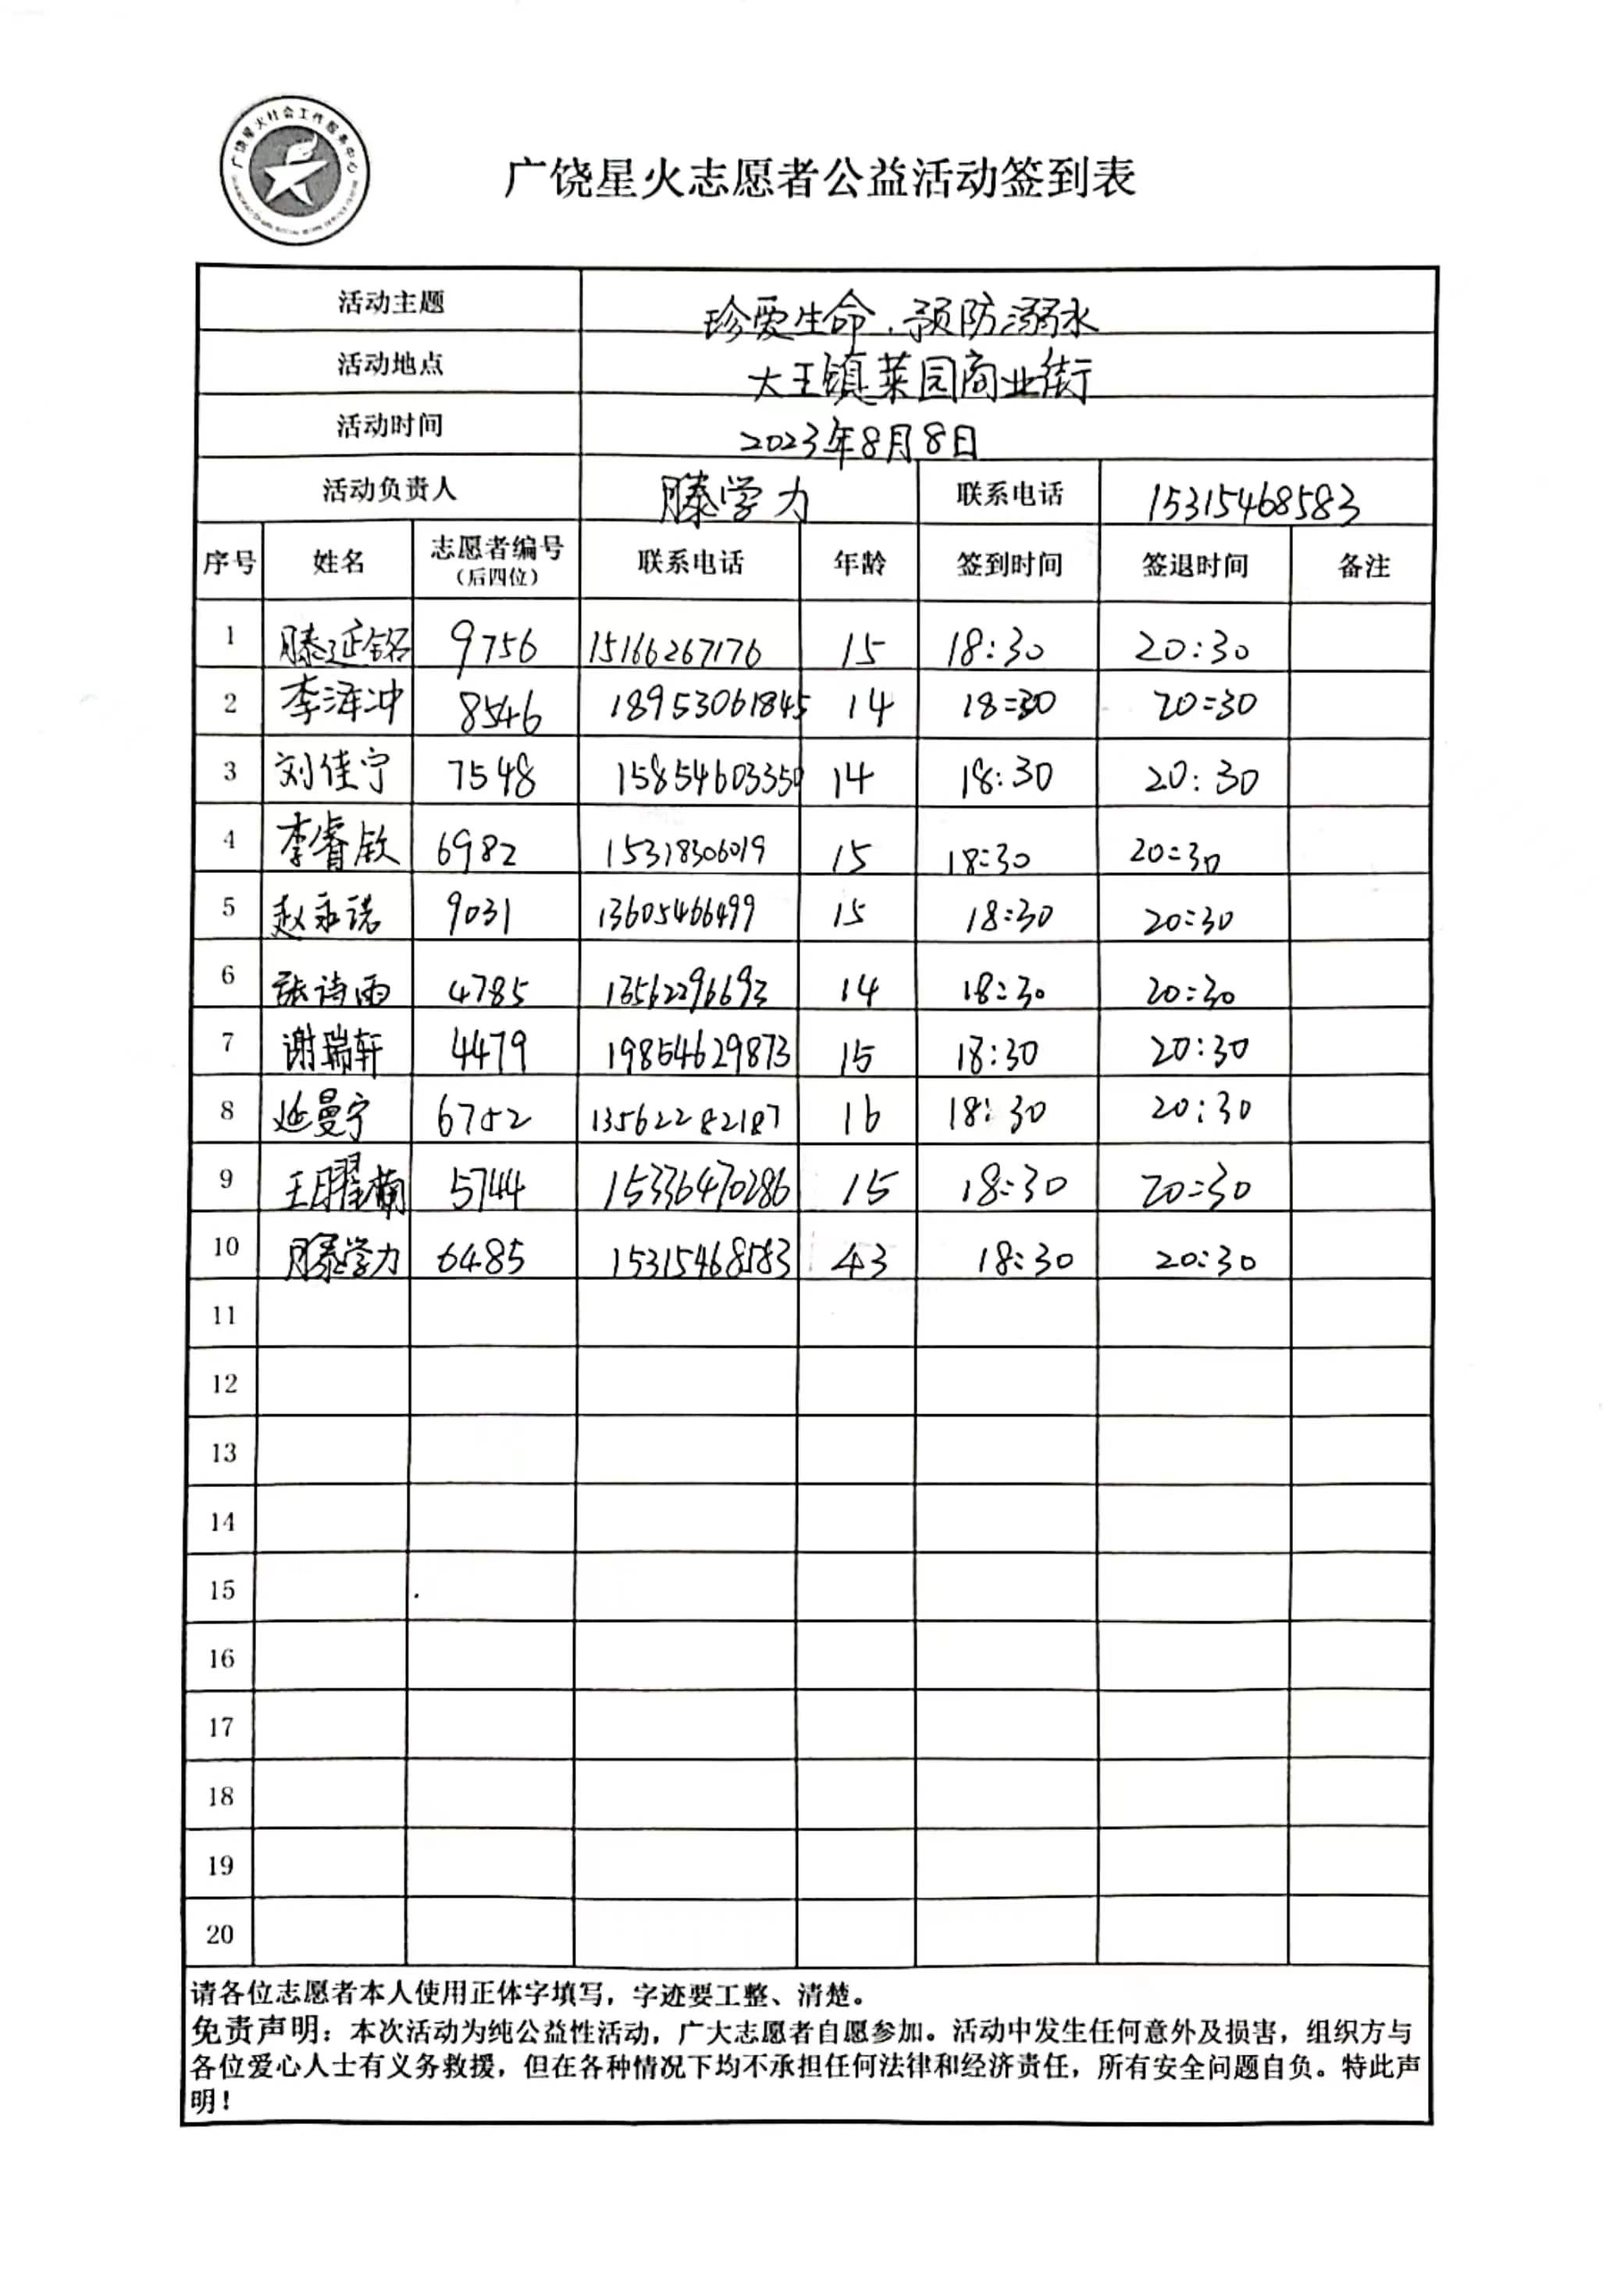 广饶星火社会工作服务中心
广饶星火志愿者公益活动签到表
活动主题 珍爱生命.预防溺水
活动地点 大王镇菜园商业街
活动时间 2023年8月8日
活动负责人 滕学力 联系电话 15315468583
序号 姓名 志愿者编号(后四位) 联系电话 年龄 签到时间 签退时间 备注
1 滕延铭 9756 15166267176 15 18:30 20:30
2 李泽冲 8546 18953061845 14 18:30 20:30
3 刘佳宁 7548 15854603350 14 18:30 20:30
4 李睿钦 6982 15318306019 15 18:30 20:30
5 赵永诺 9031 13605466499 15 18:30 20:30
6 张诗雨 4785 13562296693 14 18:30 20:30
7 谢瑞轩 4479 19854629873 15 18:30 20:30
8 延曼宁 6752 13562282187 16 18:30 20:30
9 王曜楠 5744 15336470286 15 18:30 20:30
10 滕学力 6485 15315468583 43 18:30 20:30
11
12
13
14
15
16
17
18
19
20
请各位志愿者本人使用正体字填写，字迹要工整、清楚。
免责声明：本次活动为纯公益性活动，广大志愿者自愿参加。活动中发生任何意外及损害，组织方与
各位爱心人士有义务救援，但在各种情况下均不承担任何法律和经济责任，所有安全问题自负。特此声
明！